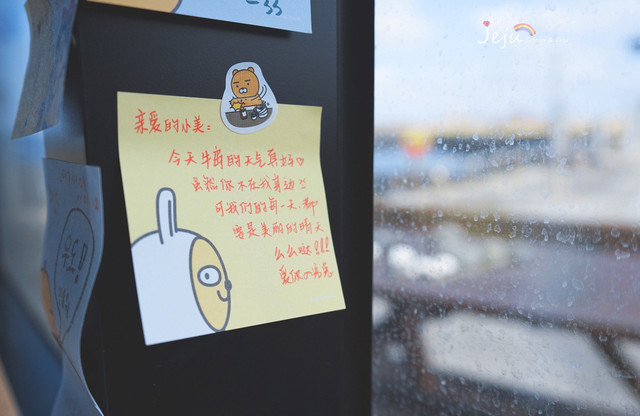 Jeju
亲爱的小美:
今天牛岛的天气真好♡
虽然你不在我身边
可我们的每一天都
要是美丽的晴天
么么哒!!!
爱你の亮亮
우도!!